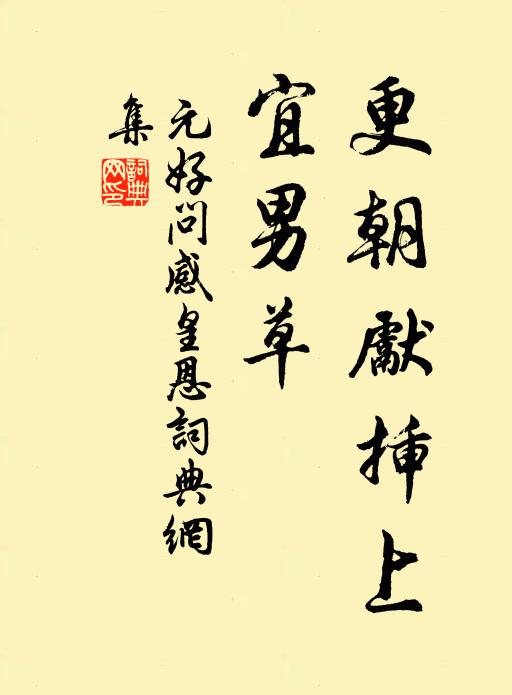 更朝獻插上
宜男草
元好問感皇恩詞典網
集
詞典
网印